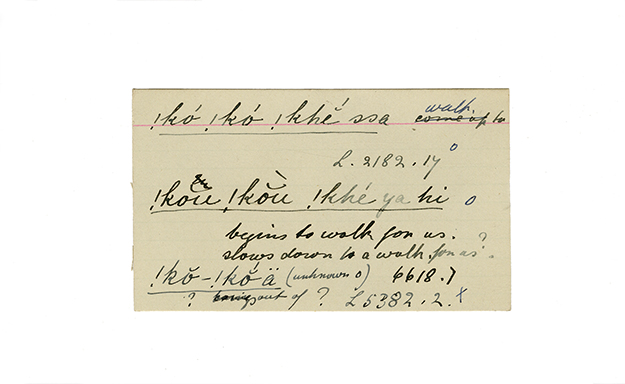 !kó !kó !khé ssa walk. come up to
L. 2182. 17 o
!kŏu !kŏu !khé ya hi o
begins to walk for us.
slows down to a walk for us ?
!kŏ-!kŏä (unknown o) 6618. 7
? out of ? L 5382. 2. x